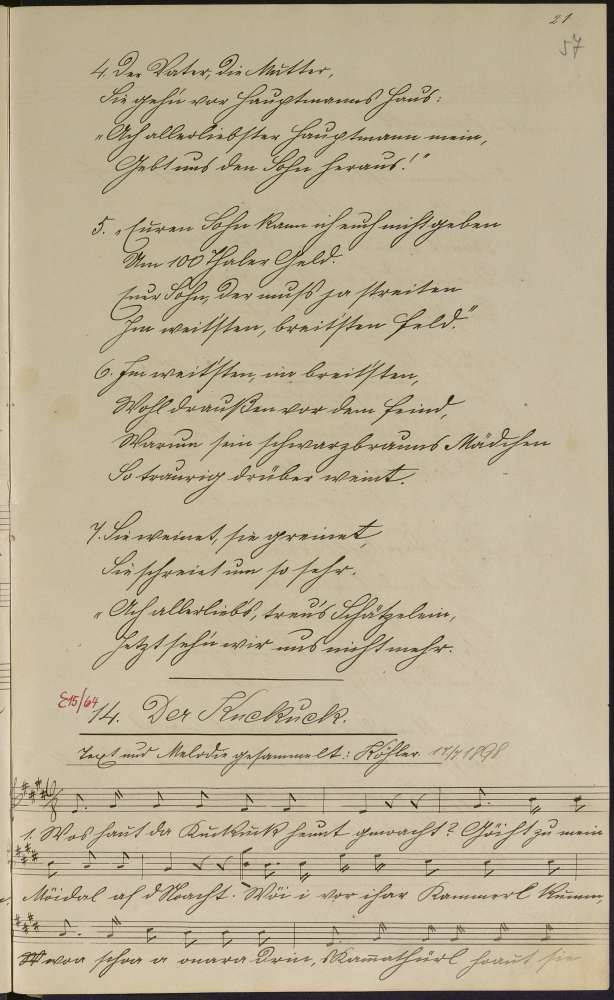 21
57
4. Der Vater, die Mutter,
Sie geh'n vor Hauptmanns Haus:
"Ach allerliebster Hauptmann mein,
Gebt uns den Sohn heraus!"
5. "Euren Sohn kann ich euch nicht geben
Um 100 Thaler Geld.
Euer Sohn, der muss ja streiten
Im weit'sten, breit'sten Feld."
6. Im weit'sten, im breit'sten,
Wohl draußen vor dem Feind,
Warum sein schwarzbrauns Mädchen
So traurig drüber weint.
7. Sie weinet, sie greinet,
Sie schreiet um so sehr.
"Ach allerliebs, treu's Schätzelein,
Jetzt seh'n wir uns nicht mehr.
E15/64
14. Der Kuckuck.
Text und Melodie gesammelt: Köhler 1898
1. Wos haut da Kuckuck heunt gmoacht? Göiht zu mein
Moidal af d Noacht. Wöi i vor ihar Kammerl kumm,
woa schoa a onara drin, Kam̅athürl haut sie